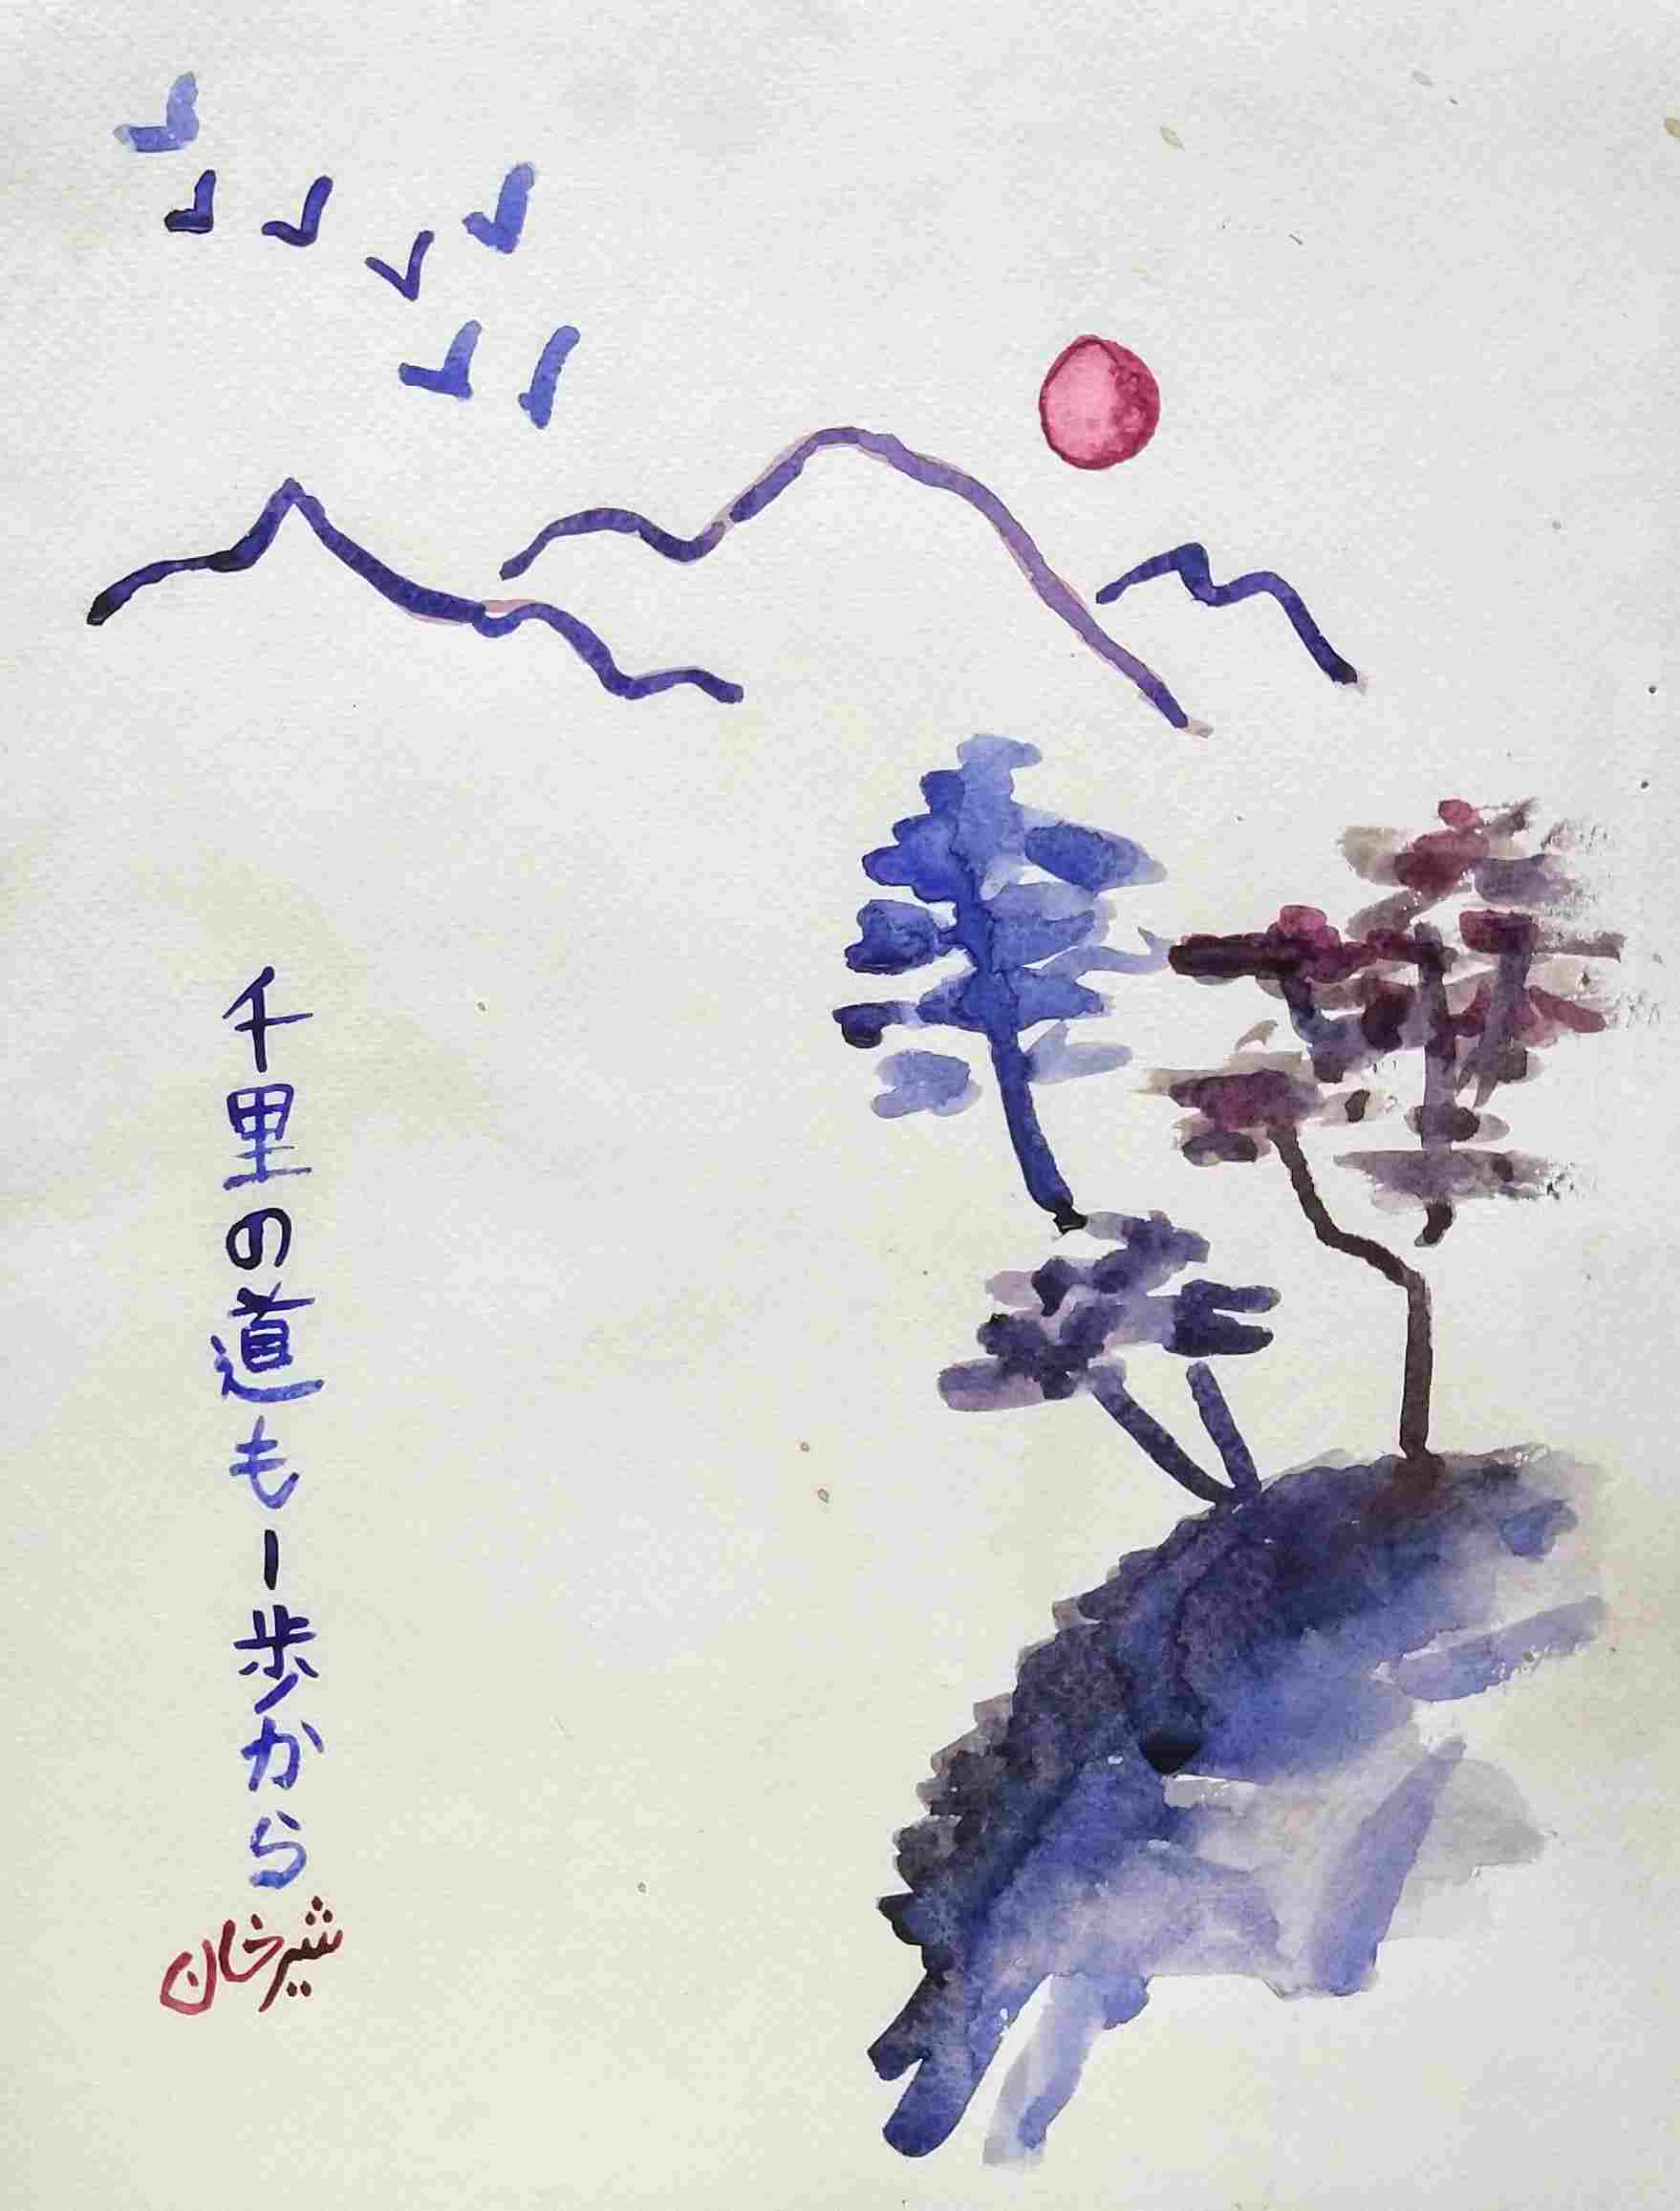 千里の道も一歩から
شیرخان